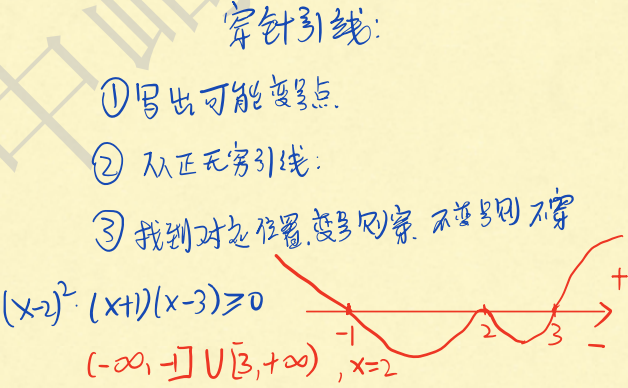 穿针引线:
①写出可能变号点.
②从正无穷引线:
③找到对应位置,变号则穿.不变号则不穿
(x-2)²·(x+1)(x-3)≥0
+
-1 2 3 −
(-∞,-1]∪[3,+∞),x=2